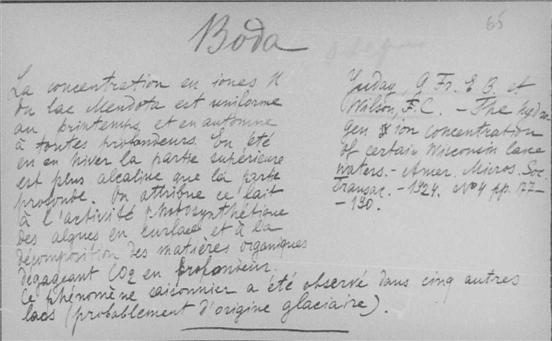 65
Boda
La concentration en iones H
du lac Mendota est uniforme
au printemps, et en automne
à toutes profondeurs. En été
en en hiver la partie supérieure
est plus alcaline que la parte
profonde. On attribue ce fait
à l'activité photosynthétique
des algues en surface et à la
décomposition des matières organiques
dégageant CO2 en profondeur.
Ce phénomène saisonnier a été observé dans cinq autres
lacs (probablement d'origine glaciaire).
Juday, Fr. E. B. et
Wilson, F.C. - The hydro
gen ion concentration
of certain Wisconsin lake
waters. - Amer. Micros. Soc.
Transac. - 1924. Nº4 pp. 177-
- 190.